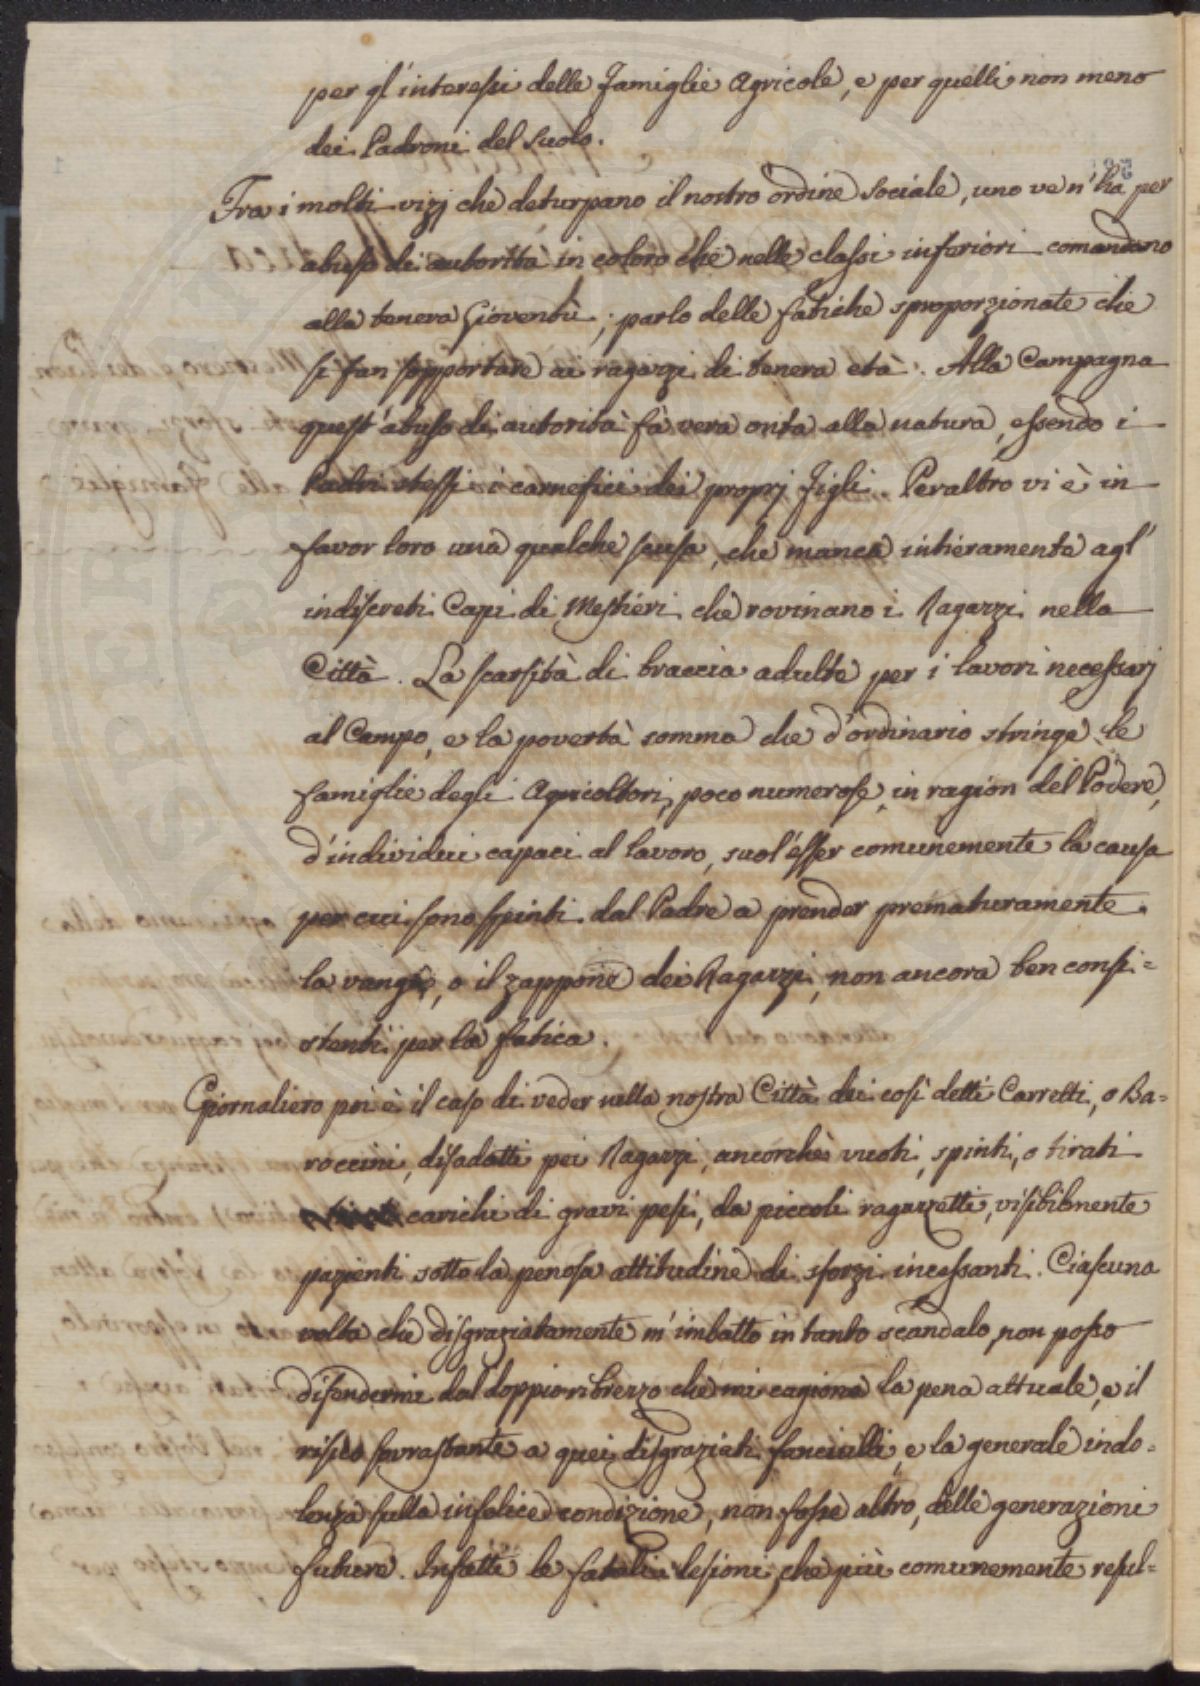 per gl'interessi delle famiglie Agricole, e per quelli non meno
dei Padroni del Suolo.
Fra i molti vizj che deturpano il nostro ordine Sociale, uno ve n'ha per
abuso di autorità in coloro che nelle classi inferiori comandano
alla tenera Gioventù; parlo delle fatiche sproporzionate che
si fan sopportare ai ragazzi di tenera età. Alla Campagna
quest'abuso di autorità fà vera onta alla natura, essendo i
Padri stessi i carnefici dei proprj Figli. Peraltro vi è in
favor loro una qualche scusa, che manca intieramente agl'
indiscreti Capi di Mestieri che rovinano i Ragazzi nella
Città. La scarsità di braccia adulte per i lavori necessarj
al Campo, e la povertà somma che d'ordinario stringe le
famiglie degli Agricoltori, poco numerose, in ragion del Podere,
d'individui capaci al lavoro, suol'esser comunemente la causa
per cui sono spinti dal Padre a prender prematuramente
la vanga, o il zappone dei Ragazzi, non ancora ben consi=
stenti per la fatica.
Giornaliero poi è il caso di veder nella nostra Città dei così detti Carretti, o Ba=
roccini, disadatti pei Ragazzi, ancorchè vuoti, spinti, o tirati
carichi di gravi pesi, da piccoli ragazzetti, visibilmente
pazienti sotto la penosa attitudine di sforzi incessanti. Ciascuna
volta che disgraziatamente m'imbatto in tanto scandalo, non posso
difendermi dal doppio ribrezzo che mi cagiona la pena attuale, e il
risico sovrastante a quei disgraziati fanciulli, e la generale indo=
lenza sulla infelice condizione, non fosse altro, delle generazioni
future. Infatti le fatali lesioni, che più comunemente resul=